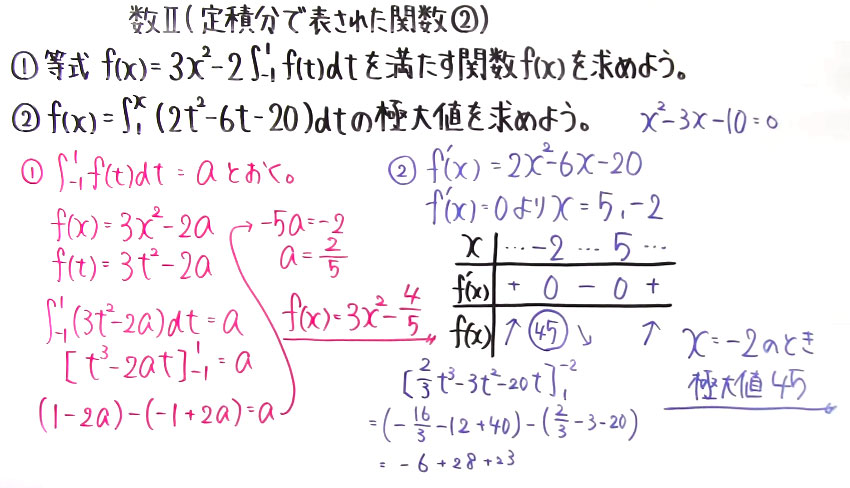 数Ⅱ(定積分で表された関数②)
① 等式 f(x)=3x²-2∫₋₁¹f(t)dtを満たす関数f(x)を求めよう。
② f(x)=∫₁ˣ(2t²-6t-20)dtの極大値を求めよう。
x²-3x-10=0
① ∫₋₁¹f(t)dt=aとおく。
f(x)=3x²-2a
f(t)=3t²-2a
∫₋₁¹(3t²-2a)dt=a
[t³-2at]₋₁¹=a
(1-2a)-(-1+2a)=a
→-5a=-2
a=2/5
f(x)=3x²-4/5
② f'(x)=2x²-6x-20
f'(x)=0よりx=5,-2
x … -2 … 5 …
f'(x) + 0 - 0 +
f(x) ↑ 45 ↘ ↑
[2/3t³-3t²-20t]₁⁻²
=(-16/3-12+40)-(2/3-3-20)
=-6+28+23
x=-2のとき
極大値45